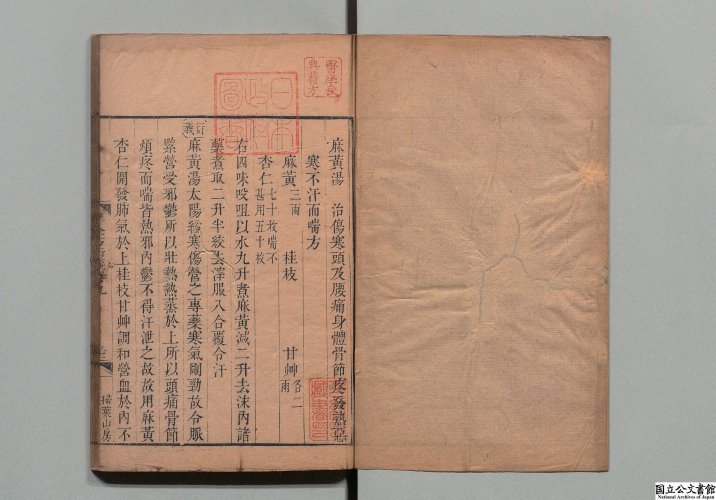 麻黃湯　治傷寒頭及腰痛身體骨節疼發熱惡
寒不汗而喘方
麻黃三兩　桂枝　甘艸各二兩
杏仁七十枚喘不甚用五十枚
右四味㕮咀以水九升煮麻黃減二升去沫內諸
藥煮取二升半絞去滓服八合覆令汗
衍義
麻黃湯太陽經寒傷營之專藥寒氣剛勁故令脈
緊營受邪鬱所以壯熱熱蒸於上所以頭痛骨節
煩疼而喘皆熱邪內鬱不得汗泄之故故用麻黃
杏仁開發肺氣於上桂枝甘艸調和營血於內不
掃葉山房
日本政府圖書
國立公文書館
National Archives of Japan